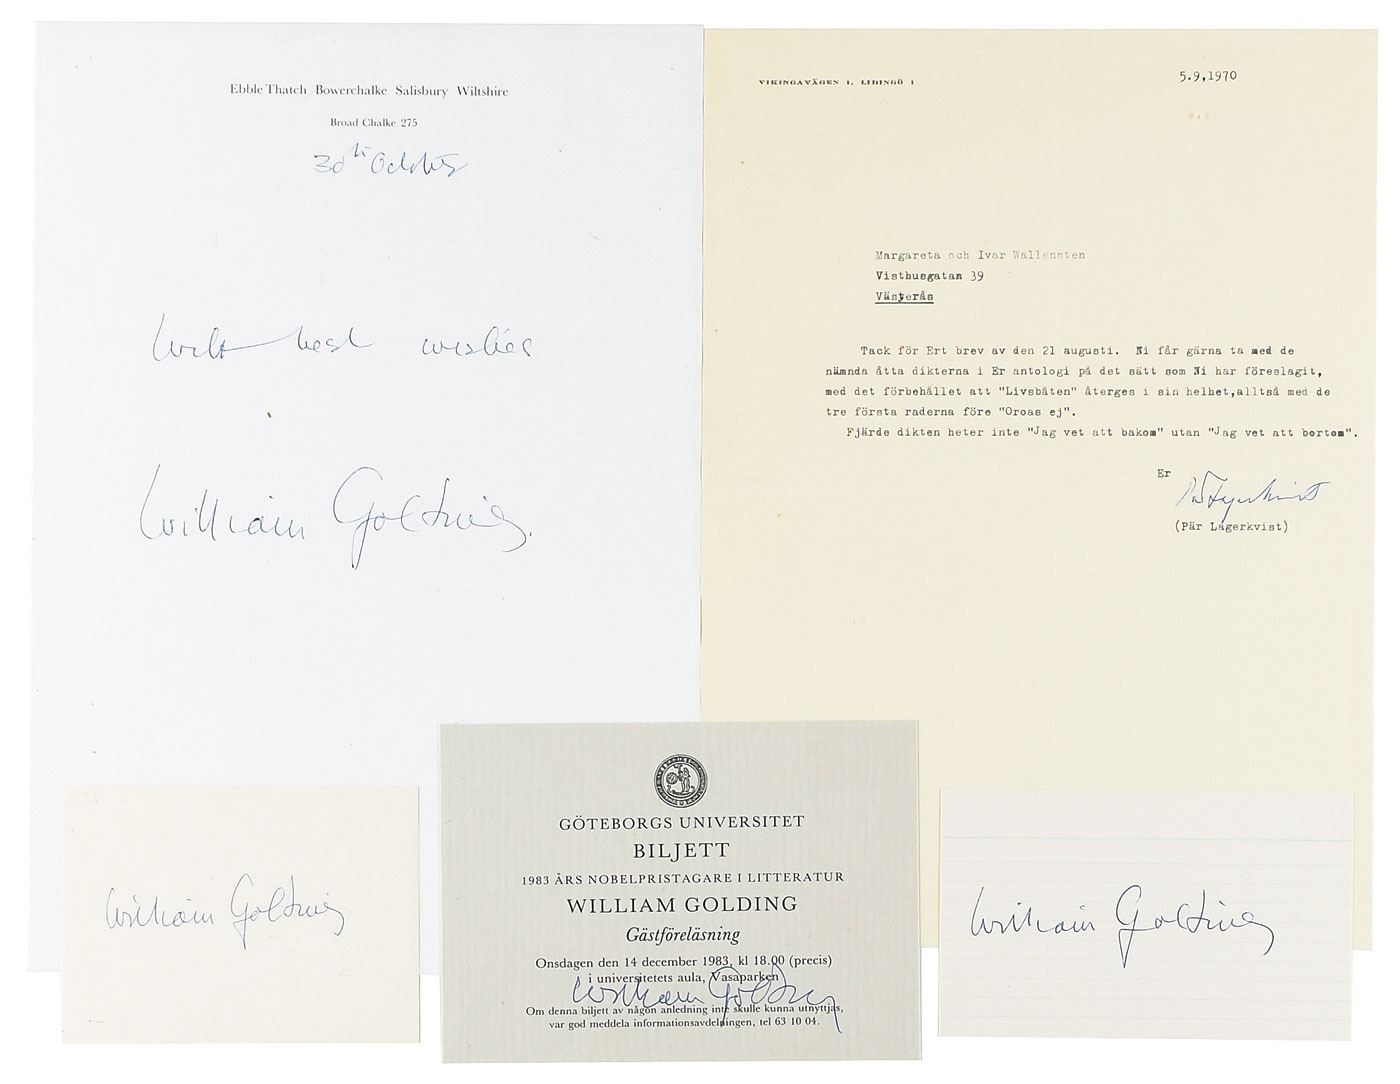 Ebble Thatch Bowerchalke Salisbury Wiltshire
Broad Chalke 275
30th October
With best wishes
William Golding.
VIKINGAVÄGEN 1. LIDINGÖ 1
5.9,1970
Margareta och Ivar Wallensten
Visthusgatan 39
Västerås
Tack för Ert brev av den 21 augusti. Ni får gärna ta med de
nämnda åtta dikterna i Er antologi på det sätt som Ni har föreslagit,
med det förbehållet att "Livsbåten" återges i sin helhet,alltså med de
tre första raderna före "Oroas ej".
Fjärde dikten heter inte "Jag vet att bakom" utan "Jag vet att bortom".
Er
Pär Lagerkvist
(Pär Lagerkvist)
William Golding
GÖTEBORGS UNIVERSITET
BILJETT
1983 ÅRS NOBELPRISTAGARE I LITTERATUR
WILLIAM GOLDING
Gästföreläsning
Onsdagen den 14 december 1983, kl 18.00 (precis)
i universitetets aula, Vasaparken
William Golding
Om denna biljett av någon anledning inte skulle kunna utnyttjas,
var god meddela informationsavdelningen, tel 63 10 04.
William Golding